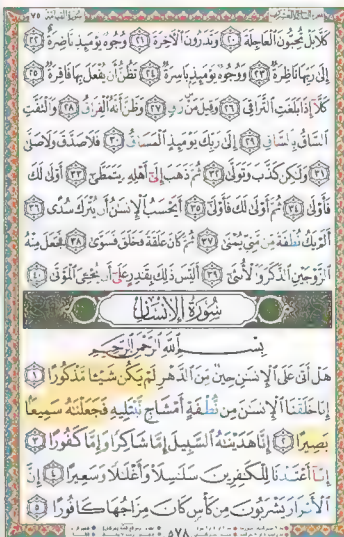 سورة القيامة ٧٥
كَلَّا بَلْ تُحِبُّونَ ٱلْعَاجِلَةَ ٢٠ وَتَذَرُونَ ٱلْـَٔاخِرَةَ ٢١ وُجُوهٌ يَوْمَئِذٍ نَّاضِرَةٌ ٢٢
إِلَىٰ رَبِّهَا نَاظِرَةٌ ٢٣ وَوُجُوهٌ يَوْمَئِذٍۭ بَاسِرَةٌ ٢٤ تَظُنُّ أَن يُفْعَلَ بِهَا فَاقِرَةٌ ٢٥
كَلَّآ إِذَا بَلَغَتِ ٱلتَّرَاقِىَ ٢٦ وَقِيلَ مَنْ ۜ رَاقٍ ٢٧ وَظَنَّ أَنَّهُ ٱلْفِرَاقُ ٢٨ وَٱلْتَفَّتِ
ٱلسَّاقُ بِٱلسَّاقِ ٢٩ إِلَىٰ رَبِّكَ يَوْمَئِذٍ ٱلْمَسَاقُ ٣٠ فَلَا صَدَّقَ وَلَا صَلَّىٰ
٣١ وَلَٰكِن كَذَّبَ وَتَوَلَّىٰ ٣٢ ثُمَّ ذَهَبَ إِلَىٰٓ أَهْلِهِۦ يَتَمَطَّىٰٓ ٣٣ أَوْلَىٰ لَكَ
فَأَوْلَىٰ ٣٤ ثُمَّ أَوْلَىٰ لَكَ فَأَوْلَىٰٓ ٣٥ أَيَحْسَبُ ٱلْإِنسَٰنُ أَن يُتْرَكَ سُدًى ٣٦
أَلَمْ يَكُ نُطْفَةً مِّن مَّنِىٍّ يُمْنَىٰ ٣٧ ثُمَّ كَانَ عَلَقَةً فَخَلَقَ فَسَوَّىٰ ٣٨ فَجَعَلَ مِنْهُ
ٱلزَّوْجَيْنِ ٱلذَّكَرَ وَٱلْأُنثَىٰٓ ٣٩ أَلَيْسَ ذَٰلِكَ بِقَٰدِرٍ عَلَىٰٓ أَن يُحْـِۧىَ ٱلْمَوْتَىٰ ٤٠
سُورَةُ الْإِنْسَانِ
بِسْمِ ٱللَّهِ ٱلرَّحْمَٰنِ ٱلرَّحِيمِ
هَلْ أَتَىٰ عَلَى ٱلْإِنسَٰنِ حِينٌ مِّنَ ٱلدَّهْرِ لَمْ يَكُن شَيْـًٔا مَّذْكُورًا ١
إِنَّا خَلَقْنَا ٱلْإِنسَٰنَ مِن نُّطْفَةٍ أَمْشَاجٍ نَّبْتَلِيهِ فَجَعَلْنَٰهُ سَمِيعًۢا
بَصِيرًا ٢ إِنَّا هَدَيْنَٰهُ ٱلسَّبِيلَ إِمَّا شَاكِرًا وَإِمَّا كَفُورًا ٣
إِنَّآ أَعْتَدْنَا لِلْكَٰفِرِينَ سَلَٰسِلَا۟ وَأَغْلَٰلًا وَسَعِيرًا ٤ إِنَّ
ٱلْأَبْرَارَ يَشْرَبُونَ مِن كَأْسٍ كَانَ مِزَاجُهَا كَافُورًا ٥
٥٧٨